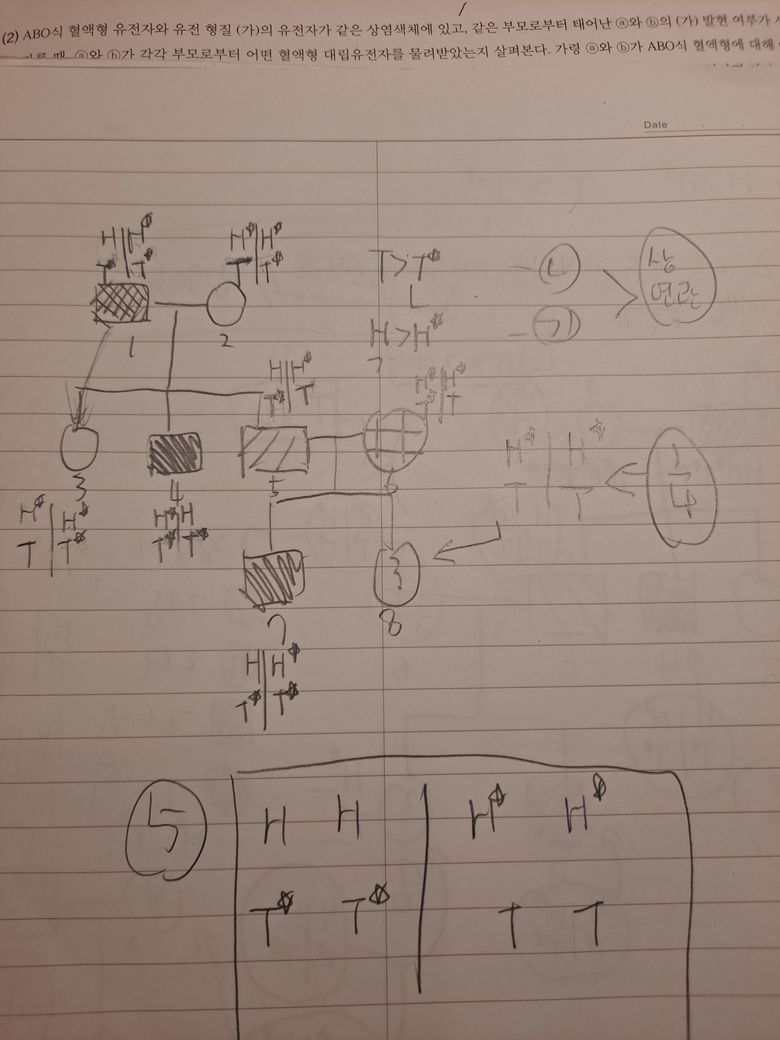 (2) ABO식 혈액형 유전자와 유전 형질 (가)의 유전자가 같은 상염색체에 있고, 같은 부모로부터 태어난 ⓐ와 ⓑ의 (가) 발현 여부가
때, ⓐ와 ⓑ가 각각 부모로부터 어떤 혈액형 대립유전자를 물려받았는지 살펴본다. 가령 ⓐ와 ⓑ가 ABO식 혈액형에 대해
Date
H | H*
T* | T*
H* | H*
T | T*
1
2
T > T* - ㄴ
H > H* - ㄱ
상
연관
H | H*
T* | T
H* | H*
T* | T
3
4
5
6
H* | H*
T | T*
H* | H
T* | T*
H* | H*
T | T
1/4
7
8
H | H*
T* | T*
5
H H | H* H*
T* T* | T T